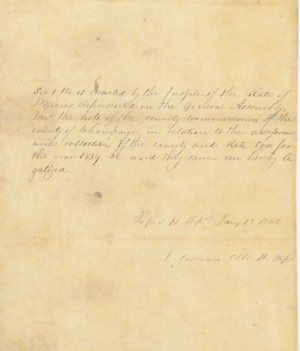 Sec 1 Be it enacted by the people of the State of
Illinois represented in the General Assembly
That the acts of the county commissioners of the
county of Champaign in relation to the assessment
and collection of the county and State tax for
the year 1839 be and they same are hereby le
galized
Jany 13 1840
J Calhoun Clk H Reps